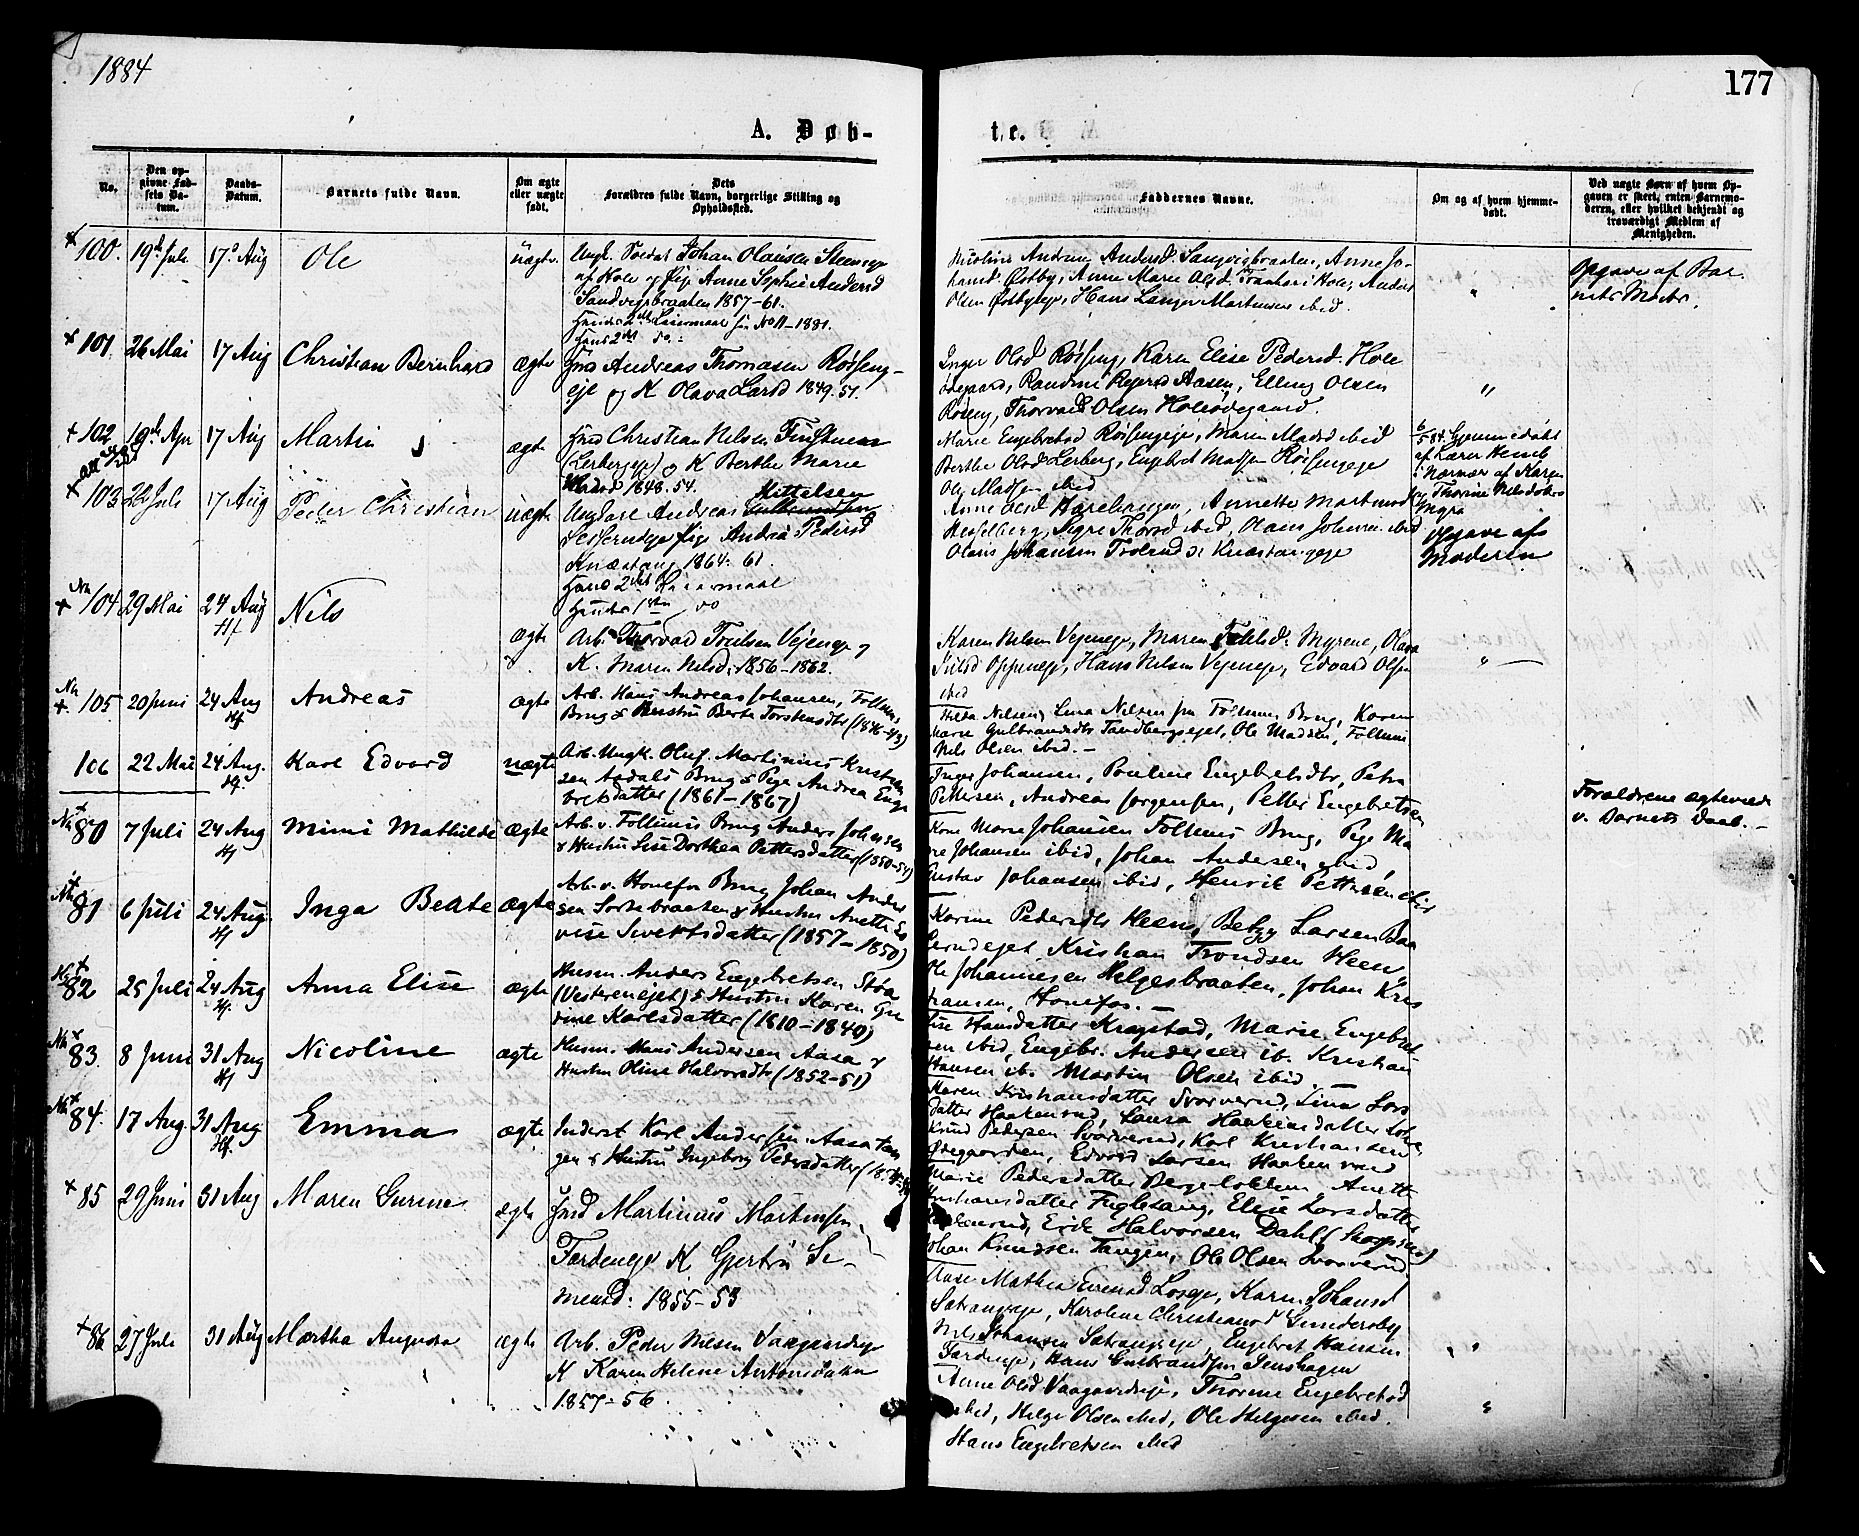 1884
177
A. Døb-
t.e.
No.
Den op-
givne Fød-
sels Da-
tum.
Daabs-
Datum.
Barnets fulde Navn.
Om ægte
eller uægte
født.
Dets
Forældres fulde Navn, borgerlige Stilling og
Opholdssted.
Faddernes Navne.
Om og af hvem hjemme-
døbt.
Ved uægte Børn af hvem Op-
gaven er skeet, enten Barnemo-
deren, eller hvilket bekjendt og
troværdigt Medlem af
Menigheden.
+ 100. 19de Juli 17 Aug Ole uægte
Ungk. Soldat Johan Olausen Steens
af Hole og Pige Anne Sophie Andersd
Sandvigbraaten 1857-61.
Hendes 2det Leiermaal No 11-1881.
Hans 2det do.
Andrine Andersd. Sangvigbraaten, Anne Jo-
hansd. Østby, Anne Marie Olsd. i Hole, Anders
Olsen Østbyeje, Hans Martinsen ibid.
Opgave af Bar-
nets Moder.
+ 101. 26 Mai 17 Aug Christian Bernhard ægte
Hmd Andreas Thomasen Røisseng-
eje og K Olava Larsd 1849. 51.
Inger Olsd Røisseng, Karen Elise Pedersd. Hole
ødegaard, Randine Aasen, Elling Olsen
Røiseng, Thorvald Olsen Holeødegaard.
"
+ 102 19de Apr 17 Aug Martin ægte
Hmd Christian Nilsen
(Lerbergeje) og K Berthe Marie
Madsd 1848. 54.
Marie Engebretsd Røissengeje, Maren Madsd ibid
Berthe Olsd Lerberg, Engebret Madsen Røissengeje
Ole Madsen ibid
6/5 84. Hjemmedøbt
af Lærer
i Nærvær af Karen
og Thorine Nilsdøtre
Myra
+ 103 22 Juli 17 Aug Peder Christian uægte
Ungkarl Andreas Mittelsen
Pige Andrea Pedersd
Knæstang 1864. 61.
Hans 2det Leiermaal
Hendes 1ste do
Anne Olsd, Annette Martinsd
Hesselberg, Sigri Thorsd ibid, Hans Johnsen ibid
Olaus Johansen og Knæstangeje
Opgave af
Moderen
Nn + 104 29 Mai 24 Aug Nils
Hf ægte
Arb. Thorvald Troulsen Vejeneje og
K. Maren Nelsd. 1856-1862.
Karen Nelsen Vejeneje, Maren Myrene, Olava
Oppeneje, Hans Nelsen Vejeneje, Edvard Olsen
ibid
"
Nn + 105 20 Juni 24 Aug Andreas ægte
Hf
Arb. Hans Andreas Johansen, Follums
Brug & Hustru Berte Torstensdtr (1846-43)
Hilda Nilsen, Lina Nilsen fra Follum Brug, Karen
Marie Gulbrandsdtr Tandbergsejet, Ole Madsen, Follum
Nils Olsen ibid. -
106 22 Mai 24 Aug. Karl Edvard uægte
Hf.
Arb. Ungk. Oluf Martinius Kristian-
sen Aadals Brug & Pige Andrea Enge
bretsdatter (1861-1867)
Inger Johansen, Pauline Engebretsdtr, Petra
Pettersen, Andreas Jørgensen, Petter Engebretsen
Forældrene ægteviede
v. Barnets Daab. -
Nn + 80 7 Juli 24 Aug Mimi Mathilde ægte
Hf
Arb. v. Follums Brug Anders Johansen
& Hustru Lise Dorthea Pettersdatter (1850-54)
Marie Johansen Follums Brug, Pige Ma
rie Johansen ibid, Johan Andersen ibid,
Gustav Johansen ibid, Henrik Pettersen ibid
Nn + 81 6 Juli 24 Aug. Inga Beate ægte
Hf
Arb. v. Honefos Brug Johan Ander
sen Sortebraaten & Hustru Anette Lo
vise Sivertsdatter (1857-1850)
Karine Pedersdtr Heen, Betzy Larsen Baa
serudejet, Kristian Trondsen Heen,
Ole Johannesen Helgesbraaten, Johan Kris
tiansen, Honefos. -
Nn + 82 25 Juli 24 Aug Anna Elise ægte
Hf.
Husm. Anders Engebretsen Støa
(Vesterenejet) & Hustru Karen Gu
rine Karlsdatter (1810-1840)
Lise Hansdatter Kragstad, Marie Engebret-
sen ibid, Engebr. Andersen ib. Kristian
Hansen ib. Martin Olsen ibid.
Nn + 83. 8 Juni 31 Aug Nicoline ægte
Hf
Husm. Hans Andersen Aasa &
Hustru Oline Halvorsdtr (1852-51)
Maren Kristiansdatter Svarverud, Lina Lars
datter Haakenrud, Laura Haakensdatter
Knud Pedersen Svarverud, Karl Kristiansen
Ødegaarden, Edvard Larsen Haakenrud
Nn + 84. 17 Aug. 31 Aug Emma ægte
Hf.
Inderst Karl Andersen Aasatan
gen & Hustru Ingeborg Pedersdatter
Marie Pedersdatter Bergelokken, Anette
Kristiansdatter Fuglesang, Elise Larsdatter
Haakenrud, Erik Halvorsen Dahl
Johan Knudsen Tangen, Ole Olsen Svarverud
+ 85 29 Juni 31 Aug Maren Gurine ægte
Hmd Martinus Martinsen
K Gjertru Si-
mensd: 1855-53
Mathea, Karen Johansd
Sætrangeje, Karoline Christiansd Gundersby
Nils Johansen Sætrangeje, Engebret Hansen
Hans Gulbrandsen
"
+ 86 27 Juli 31 Aug Martha Augusta ægte
Arb. Peder Vaagaardseje
K Karen Helene Antonsdatter
1857-56.
Anne Olsd Vaagaardseje, Thorine Engebretsd
ibid, Helge Olsen ibid, Ole Helgesen ibid.
Hans Engebretsen ibid
"